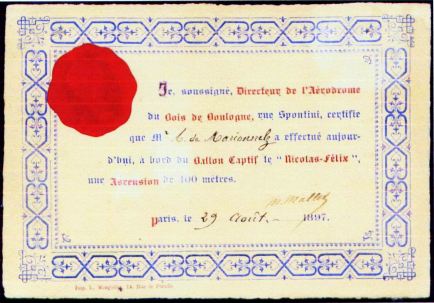 Je, soussigné, Directeur de l'Aérodrome
du Bois de Boulogne, rue Spontini, certifie
que Mr de a effectué aujour-
d'hui, à bord du Ballon Captif le "Nicolas-Félix",
une Ascension de 400 mètres.
M. Mallet
Paris, le 29 Août 1897.
Imp. 14, Rue de